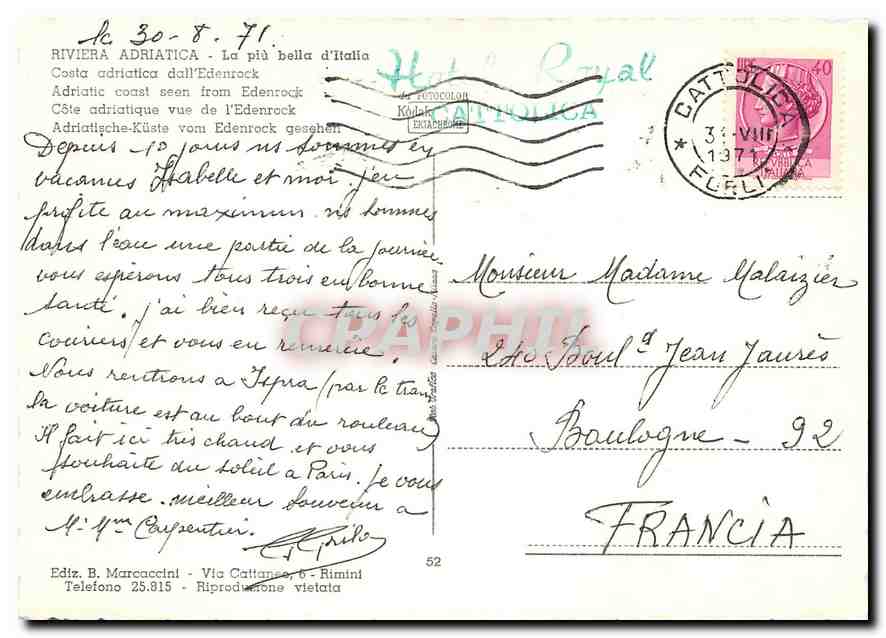 le 30-8-71.
RIVIERA ADRIATICA - La più bella d'Italia
Costa adriatica dall'Edenrock
Adriatic coast seen from Edenrock
Côte adriatique vue de l'Edenrock
Adriatische-Küste vom Edenrock gesehen
Depuis 10 jours ns sommes en
vacances Isabelle et moi. j'en
profite au maximum. ns sommes
dans l'eau une partie de la journée.
vous espérons tous trois en bonne
santé. j'ai bien reçu tous les
couriers, et vous en remercie.
Nous rentrons a Ispra (par le train
la voiture est au bout du rouleau)
Il fait ici très chaud et vous
souhaite du soleil a Paris. je vous
embrasse. meilleur souvenir a
Mr Mme Carpentier.
Ediz. B. Marcaccini - Via Cattaneo, 6 - Rimini
Telefono 25.815 - Riproduzione vietata
52
Hotel Royal
CATTOLICA
da FOTOCOLOR
Kodak
EKTACHROME
CATTOLICA
31-VIII
1971
* FORLI
LIRE 40
REPVBBLICA
ITALIANA
CPAPHIL
Monsieur Madame Malaizier
240 Boul d Jean Jaurès
Boulogne - 92
FRANCIA